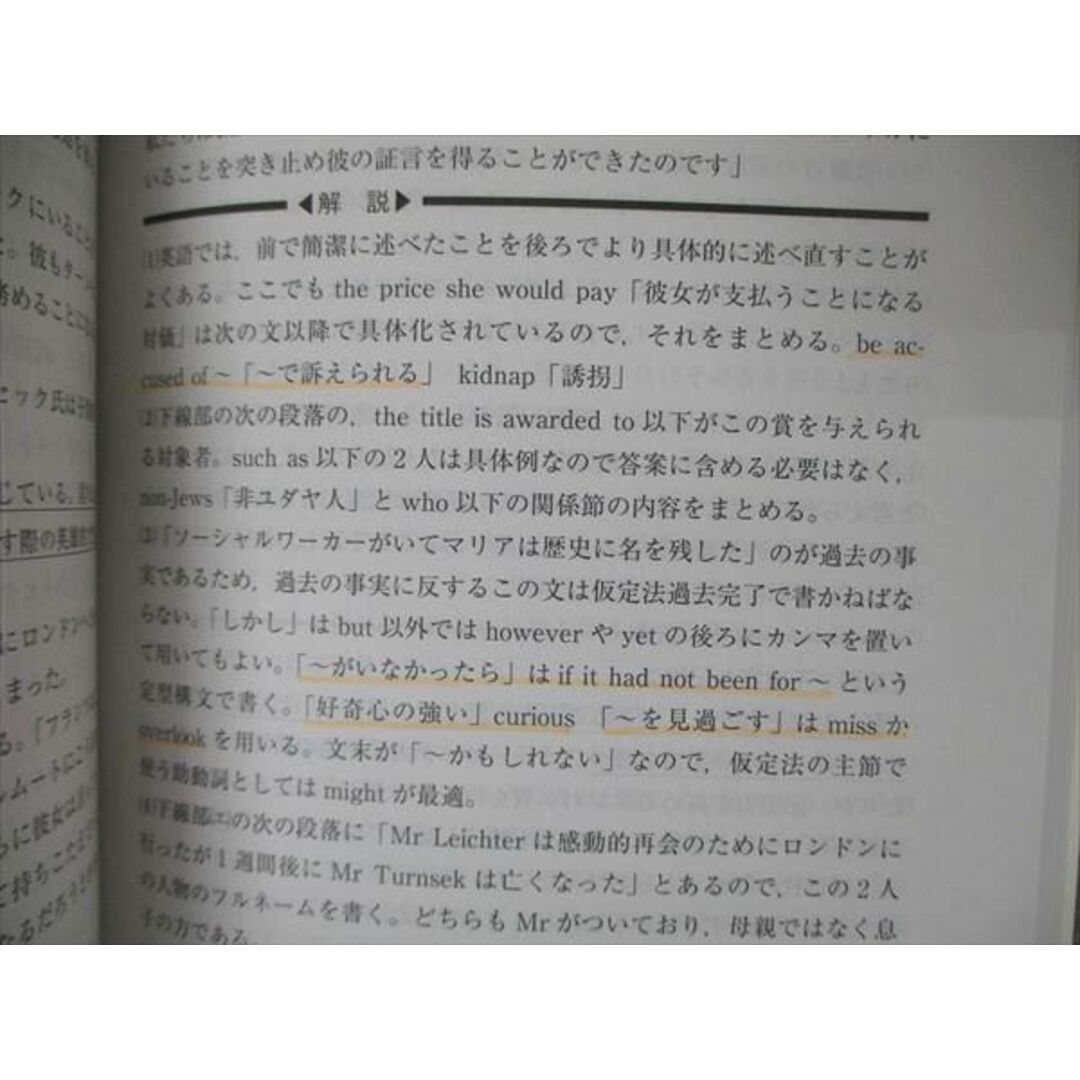 いることを突き止め彼の証言を得ることができたのです」
◀解 説▶
(1)英語では，前で簡潔に述べたことを後ろでより具体的に述べ直すことが
よくある。ここでも the price she would pay「彼女が支払うことになる
対価」は次の文以降で具体化されているので，それをまとめる。be ac-
cused of ～「～で訴えられる」 kidnap「誘拐」
(2)下線部の次の段落の，the title is awarded to 以下がこの賞を与えられ
る対象者。such as 以下の2人は具体例なので答案に含める必要はなく，
non-Jews「非ユダヤ人」と who 以下の関係節の内容をまとめる。
(3)「ソーシャルワーカーがいてマリアは歴史に名を残した」のが過去の事
実であるため，過去の事実に反するこの文は仮定法過去完了で書かねばな
らない。「しかし」は but 以外では however や yet の後ろにカンマを置い
て用いてもよい。「～がいなかったら」は if it had not been for ～ という
定型構文で書く。「好奇心の強い」curious 「～を見過ごす」は miss か
overlook を用いる。文末が「～かもしれない」なので，仮定法の主節で
使う助動詞としては might が最適。
(4)下線部(エ)の次の段落に「Mr Leichter は感動的再会のためにロンドンに
行ったが1週間後に Mr Turnsek は亡くなった」とあるので，この2人
の人物のフルネームを書く。どちらも Mr がついており，母親ではなく息
子の方である。
クにいること
。彼もゲー
努めることに
セック氏は
じている。
す際の英
にロンドンへ
まった。
る。「フラン
ムートにこ
らに彼女は
と持ちこたえ
なるだろう